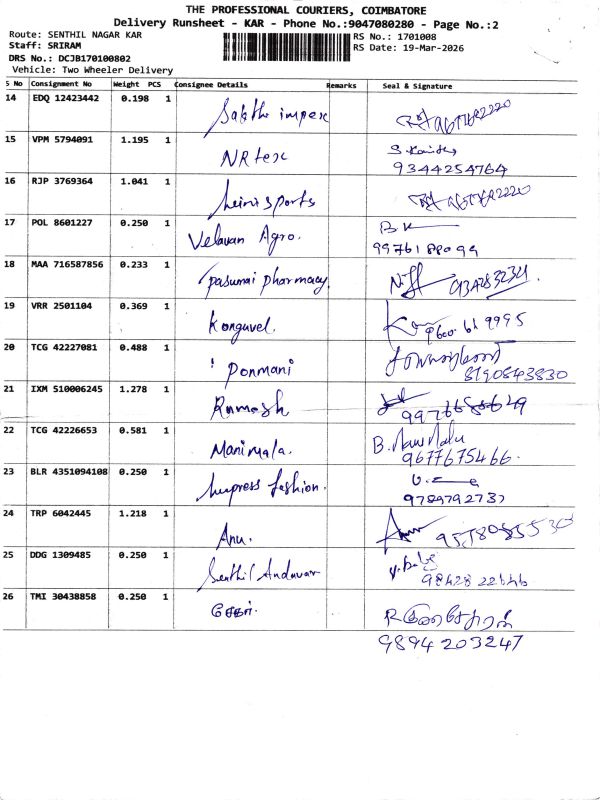 THE PROFESSIONAL COURIERS, COIMBATORE
Delivery Runsheet - KAR - Phone No.:9047080280 - Page No.:2
Route: SENTHIL NAGAR KAR
Staff: SRIRAM
DRS No.: DCJB170100802
Vehicle: Two Wheeler Delivery
RS No.: 1701008
RS Date: 19-Mar-2026
S No Consignment No Weight PCS Consignee Details Remarks Seal & Signature
14 EDQ 12423442 0.198 1 Sakthi impex
15 VPM 5794091 1.195 1 NR tex
9344254764
16 RJP 3769364 1.041 1 sports
17 POL 8601227 0.250 1 Velavan Agro. BK
9976188099
18 MAA 716587856 0.233 1 pasumai pharmacy.
19 VRR 2501104 0.369 1 Konguvel.
20 TCG 42227081 0.488 1 Ponmani
8190843830
21 IXM 510006245 1.278 1 Ramesh
22 TCG 42226653 0.581 1 Manimala. B.
9677675466.
23 BLR 4351094108 0.250 1 Impress fashion.
24 TRP 6042445 1.218 1 Anu.
25 DDG 1309485 0.250 1 Senthil Andavar
26 TMI 30438858 0.250 1 சேகர்.
9894203247